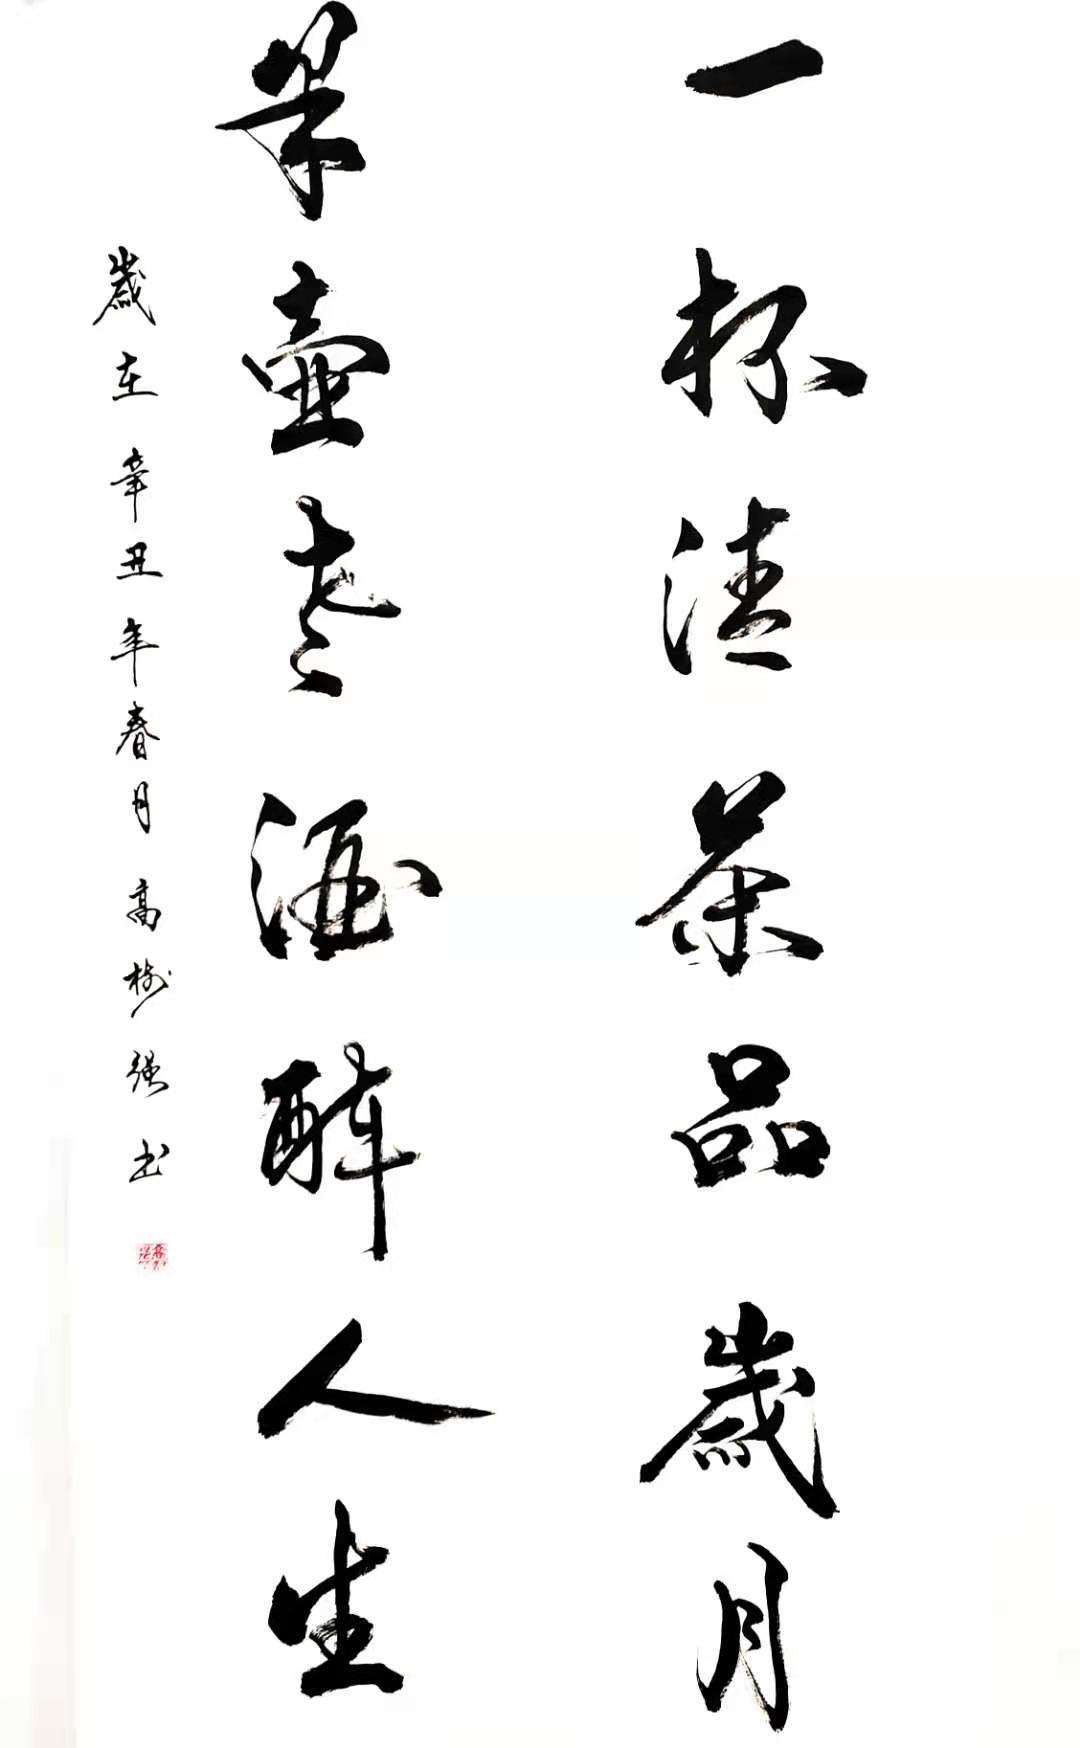 一杯清茶品歲月
半壶老酒醉人生
歲在辛丑年春月高树强书